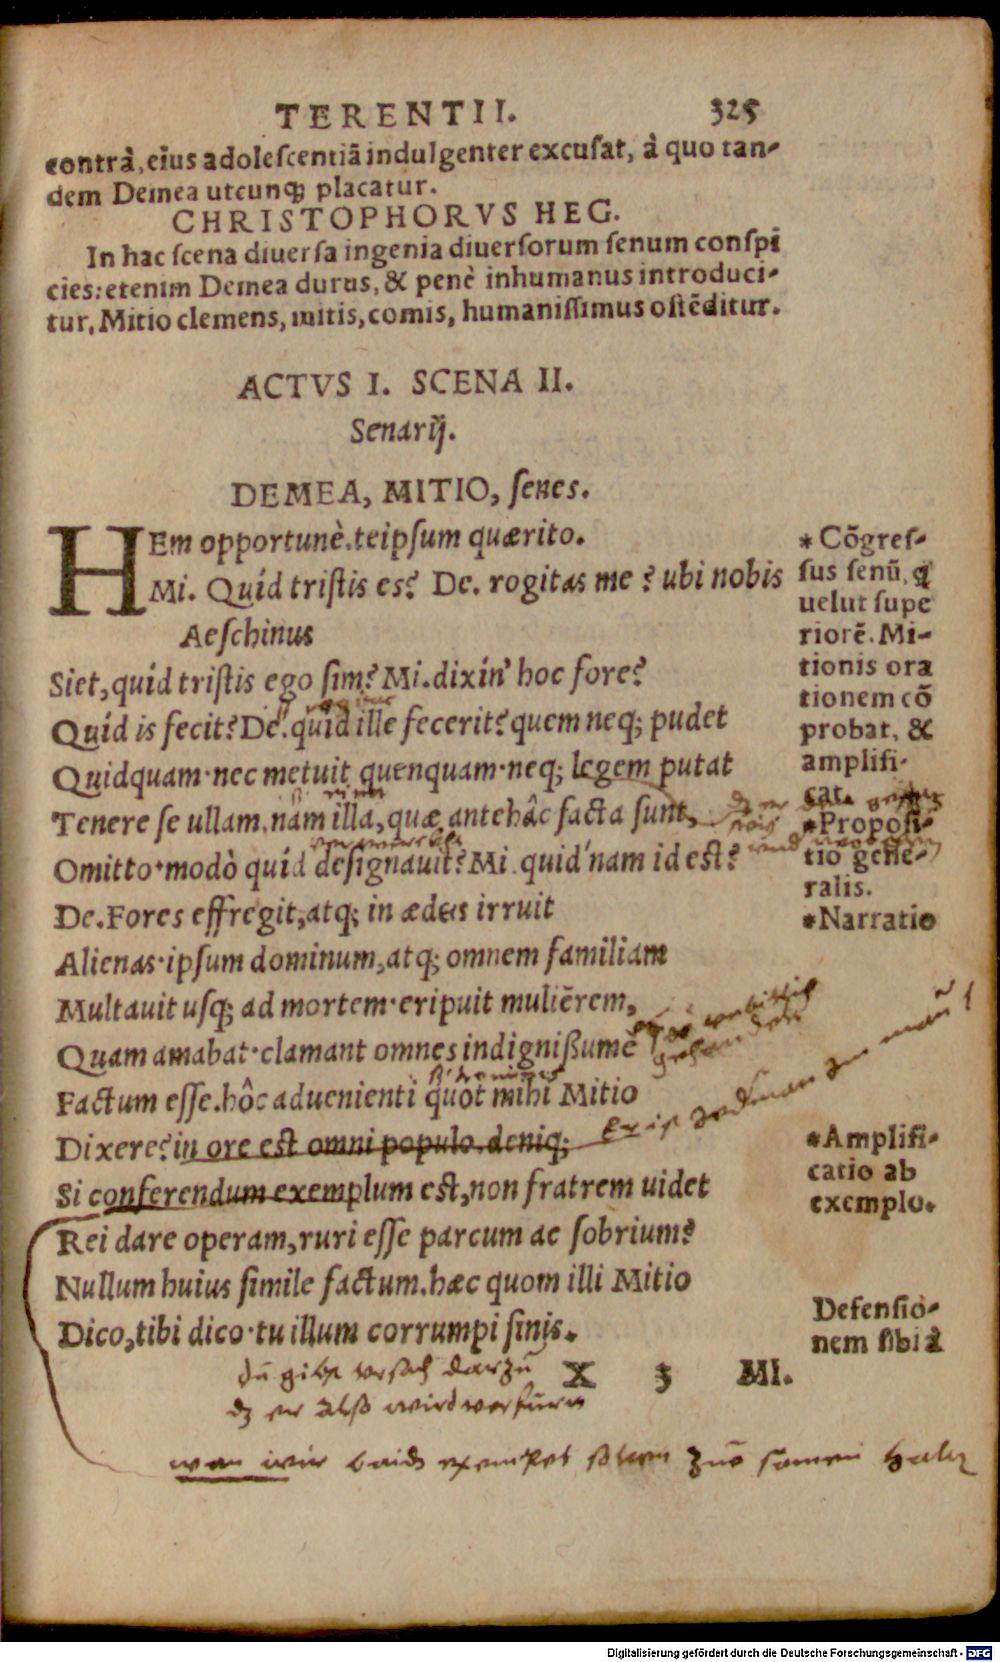 TERENTII. 325
contrà, eius adolescentiã indulgenter excusat, à quo tan-
dem Demea utcunq; placatur.
CHRISTOPHORVS HEG.
In hac scena diuersa ingenia diuersorum senum conspi
cies: etenim Demea durus, & penè inhumanus introduci-
tur, Mitio clemens, mitis, comis, humanissimus ostẽditur.
ACTVS I. SCENA II.
Senarij.
DEMEA, MITIO, senes.
HEm opportunè. teipsum quærito.
Mi. Quid tristis es? De. rogitas me? ubi nobis
Aeschinus
Siet, quid tristis ego sim? Mi. dixin' hoc fore?
Quid is fecit? De. quid ille fecerit? quem neq; pudet
Quidquam· nec metuit quenquam· neq; legem putat
Tenere se ullam. nam illa, quæ antehâc facta sunt,
Omitto· modò quid designauit? Mi. quid'nam id est?
De. Fores effregit, atq; in ædes irruit
Alienas· ipsum dominum, atq; omnem familiam
Multauit usq; ad mortem· eripuit muliẽrem,
Quam amabat· clamant omnes indignißumè
Factum esse. hôc aduenienti quot mihi Mitio
Dixere? in ore est omni populo. deniq;
Si conferendum exemplum est, non fratrem uidet
Rei dare operam, ruri esse parcum ac sobrium?
Nullum huius simile factum. hæc quom illi Mitio
Dico, tibi dico· tu illum corrumpi sinis.
X 3 MI.
* Cõgres-
sus senũ, q
uelut supe
riorẽ. Mi-
tionis ora
tionem cõ
probat, &
amplifi-
cat.
* Proposi-
tio gene-
ralis.
* Narratio
* Amplifi-
catio ab
exemplo.
Defensio-
nem sibi à
du gibst vrsach darzu
dz er
wan wir
Digitalisierung gefördert durch die Deutsche Forschungsgemeinschaft - DFG